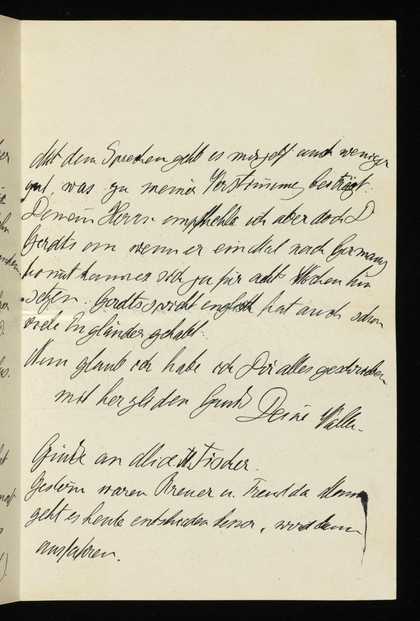 Mit dem Sprechen geht es mir oft auch weniger
gut, was zu meiner Verstimmung beiträgt.
Deinem Herrn empfehle ich aber doch D
Gerdts an wenn er einmal nach Germany
kommt kann er sich ja für acht Wochen hin
setzen. Gerdts spricht englisch hat auch schon
viele Engländer gehabt.
Nun glaub ich habe ich Dir alles geschrieben
mit herzlichen Gruß Deine
Grüße an Fischer.
Gestern waren Breuer u. Freud da
geht es heute entschieden besser, wird dann
ausfahren.